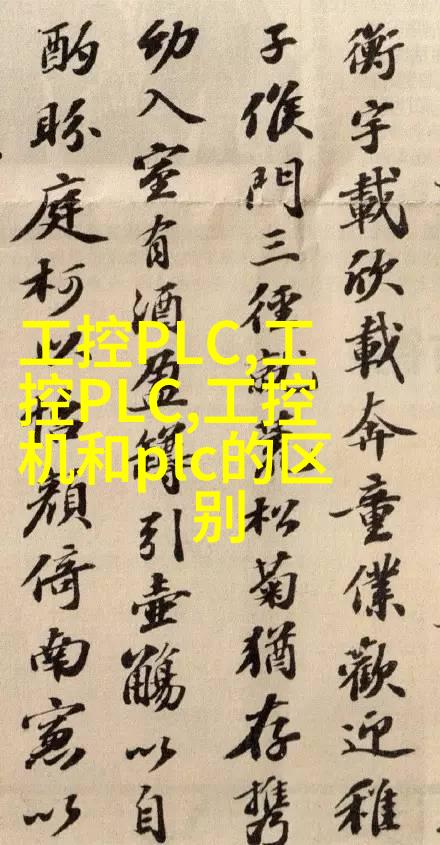 衡宇載欣載奔童僕歡迎稚
子候門三徑就荒松菊猶存携
幼入室有酒盈罇引壺觴以自
酌眄庭柯以怡顏倚南窓以
工控PLC,工
控PLC,工控
机和plc的区
别